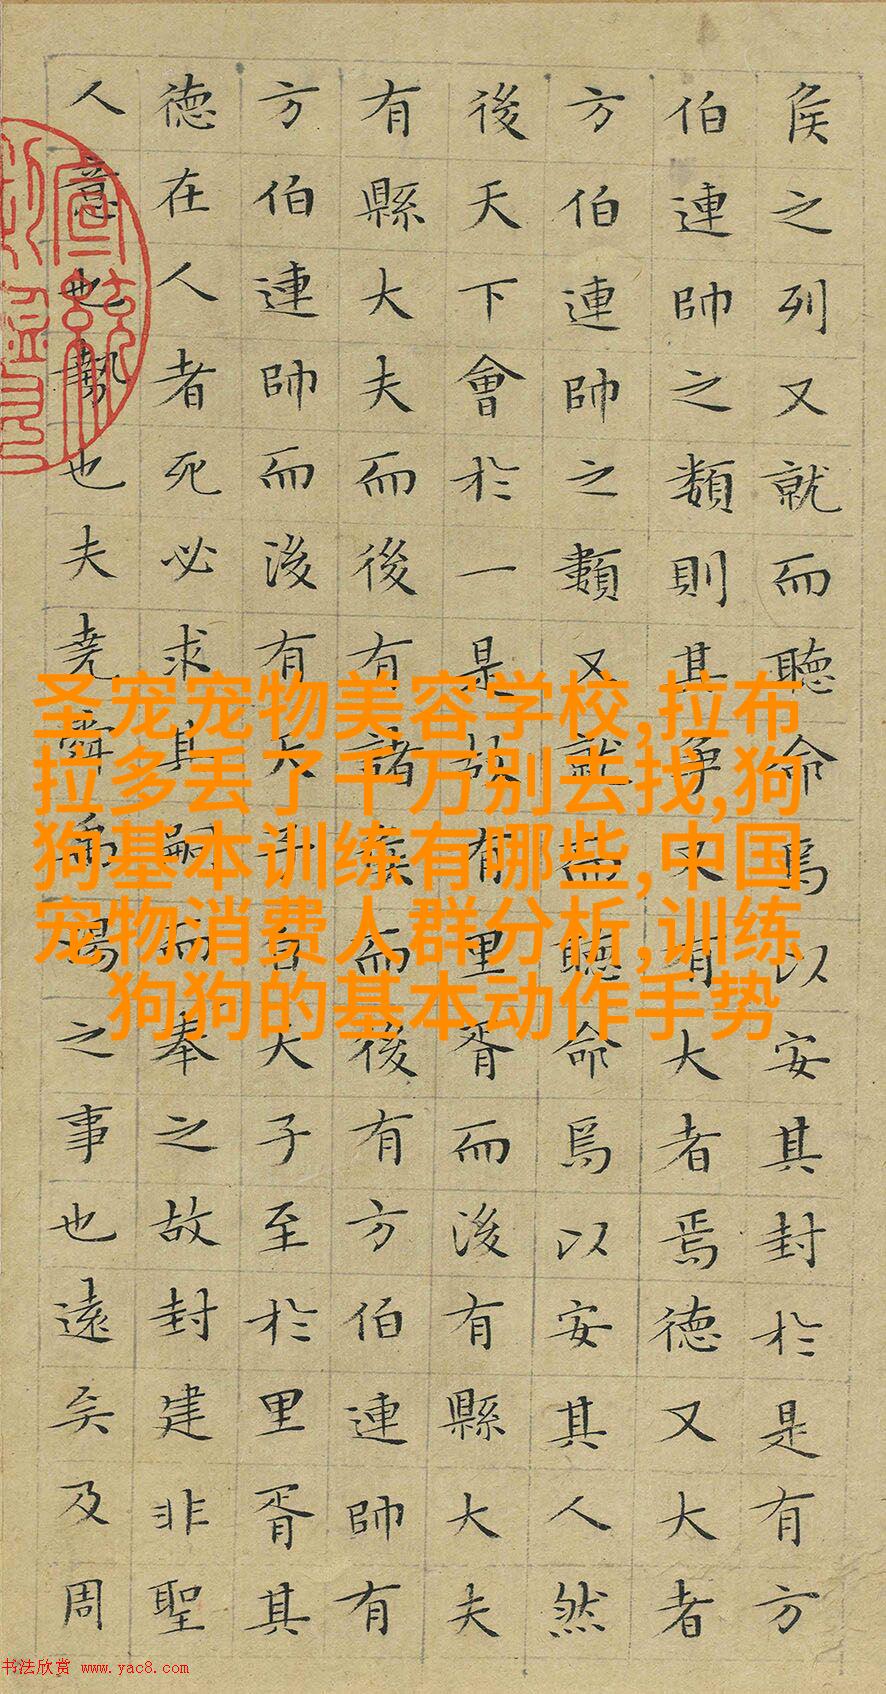 侯之列又就而聽命焉以安其封於是有方
伯連帥之類則其爭又有大者焉德又大者
方伯連帥之類又就而聽命焉以安其人然
後天下會於一是故有里胥而後有縣大夫
有縣大夫而後有諸侯而後有方伯連帥有
方伯連帥而後有天子自天子至於里胥其
德在人者死必求其嗣而奉之故封建非聖
人意也勢也夫堯舜禹湯之事也遠矣及周
圣宠宠物美容学校,拉布
拉多丢了千万别去找,狗
狗基本训练有哪些,中国
宠物消费人群分析,训练
狗狗的基本动作手势
书法欣赏 www.yac8.com